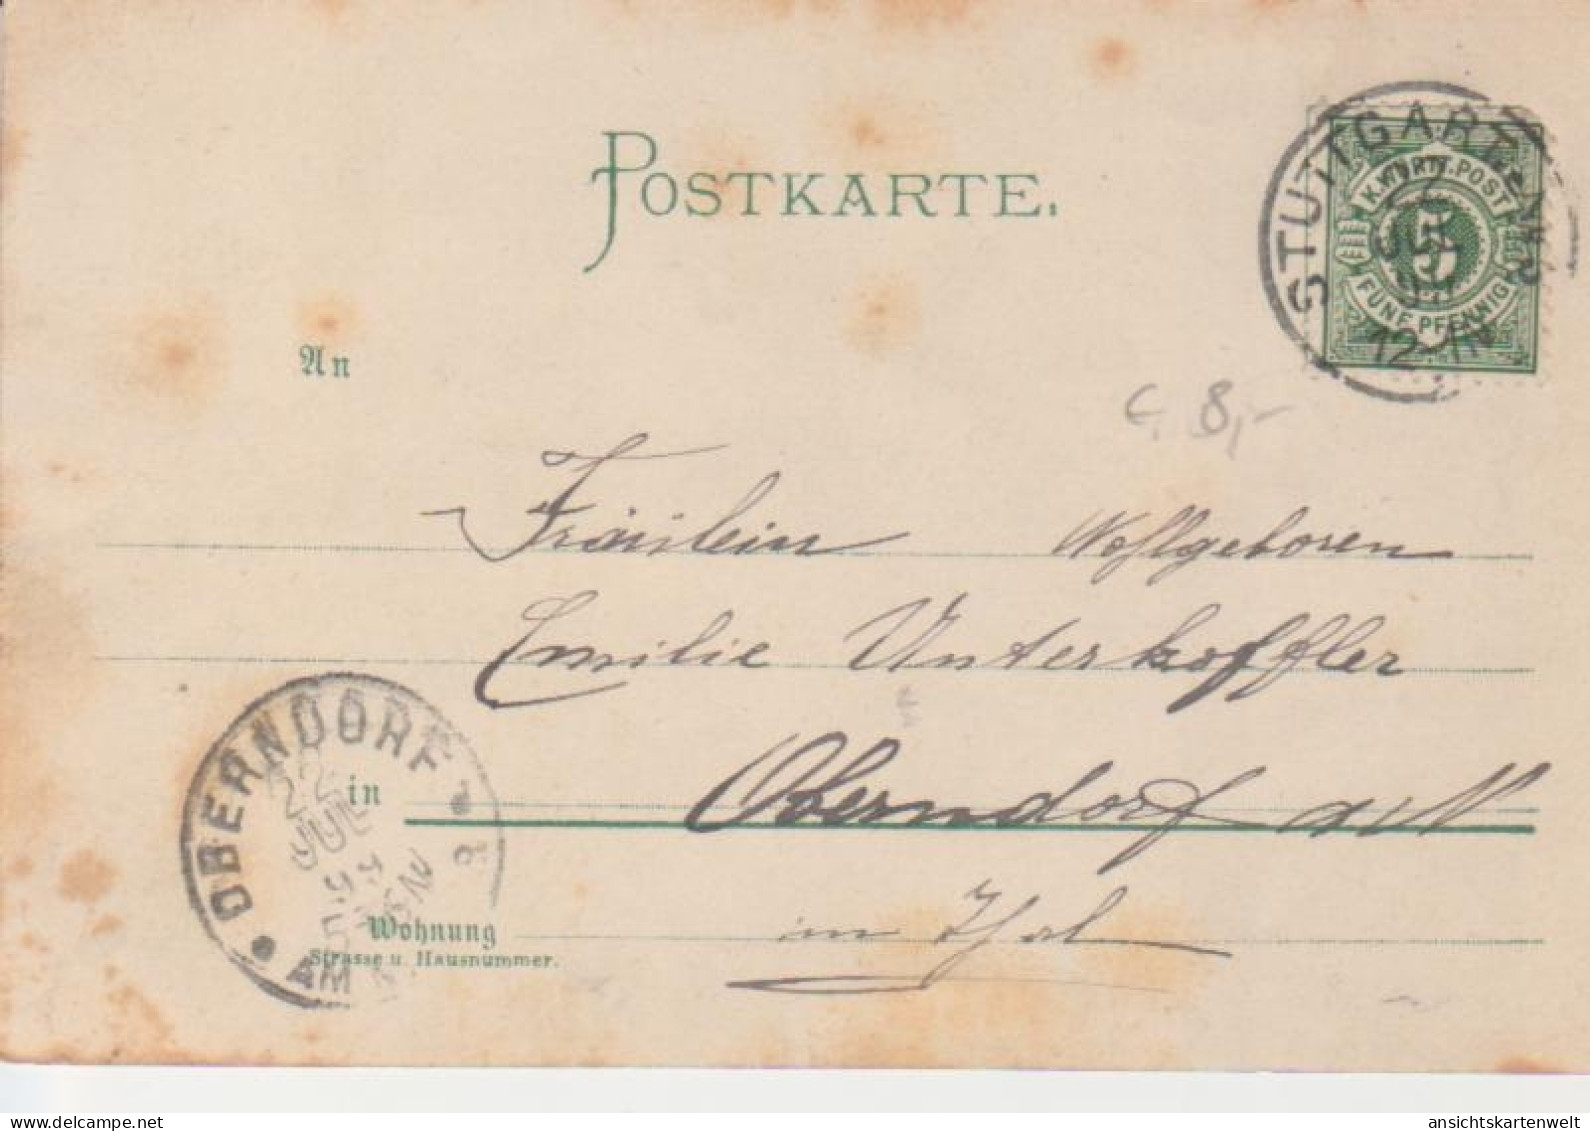 POSTKARTE.
STUTTGART
K. WÜRTT. POST
5
FÜNF PFENNIG
22
JUL
12-1N
An
C. 8,-
Fräulein Wohlgeboren
Emilie Unterkoffler
in Oberndorf a/N
OBERNDORF
22
JUL
AM
Wohnung
Strasse u. Hausnummer.
im Thal
www.delcampe.net
ansichtskartenwelt